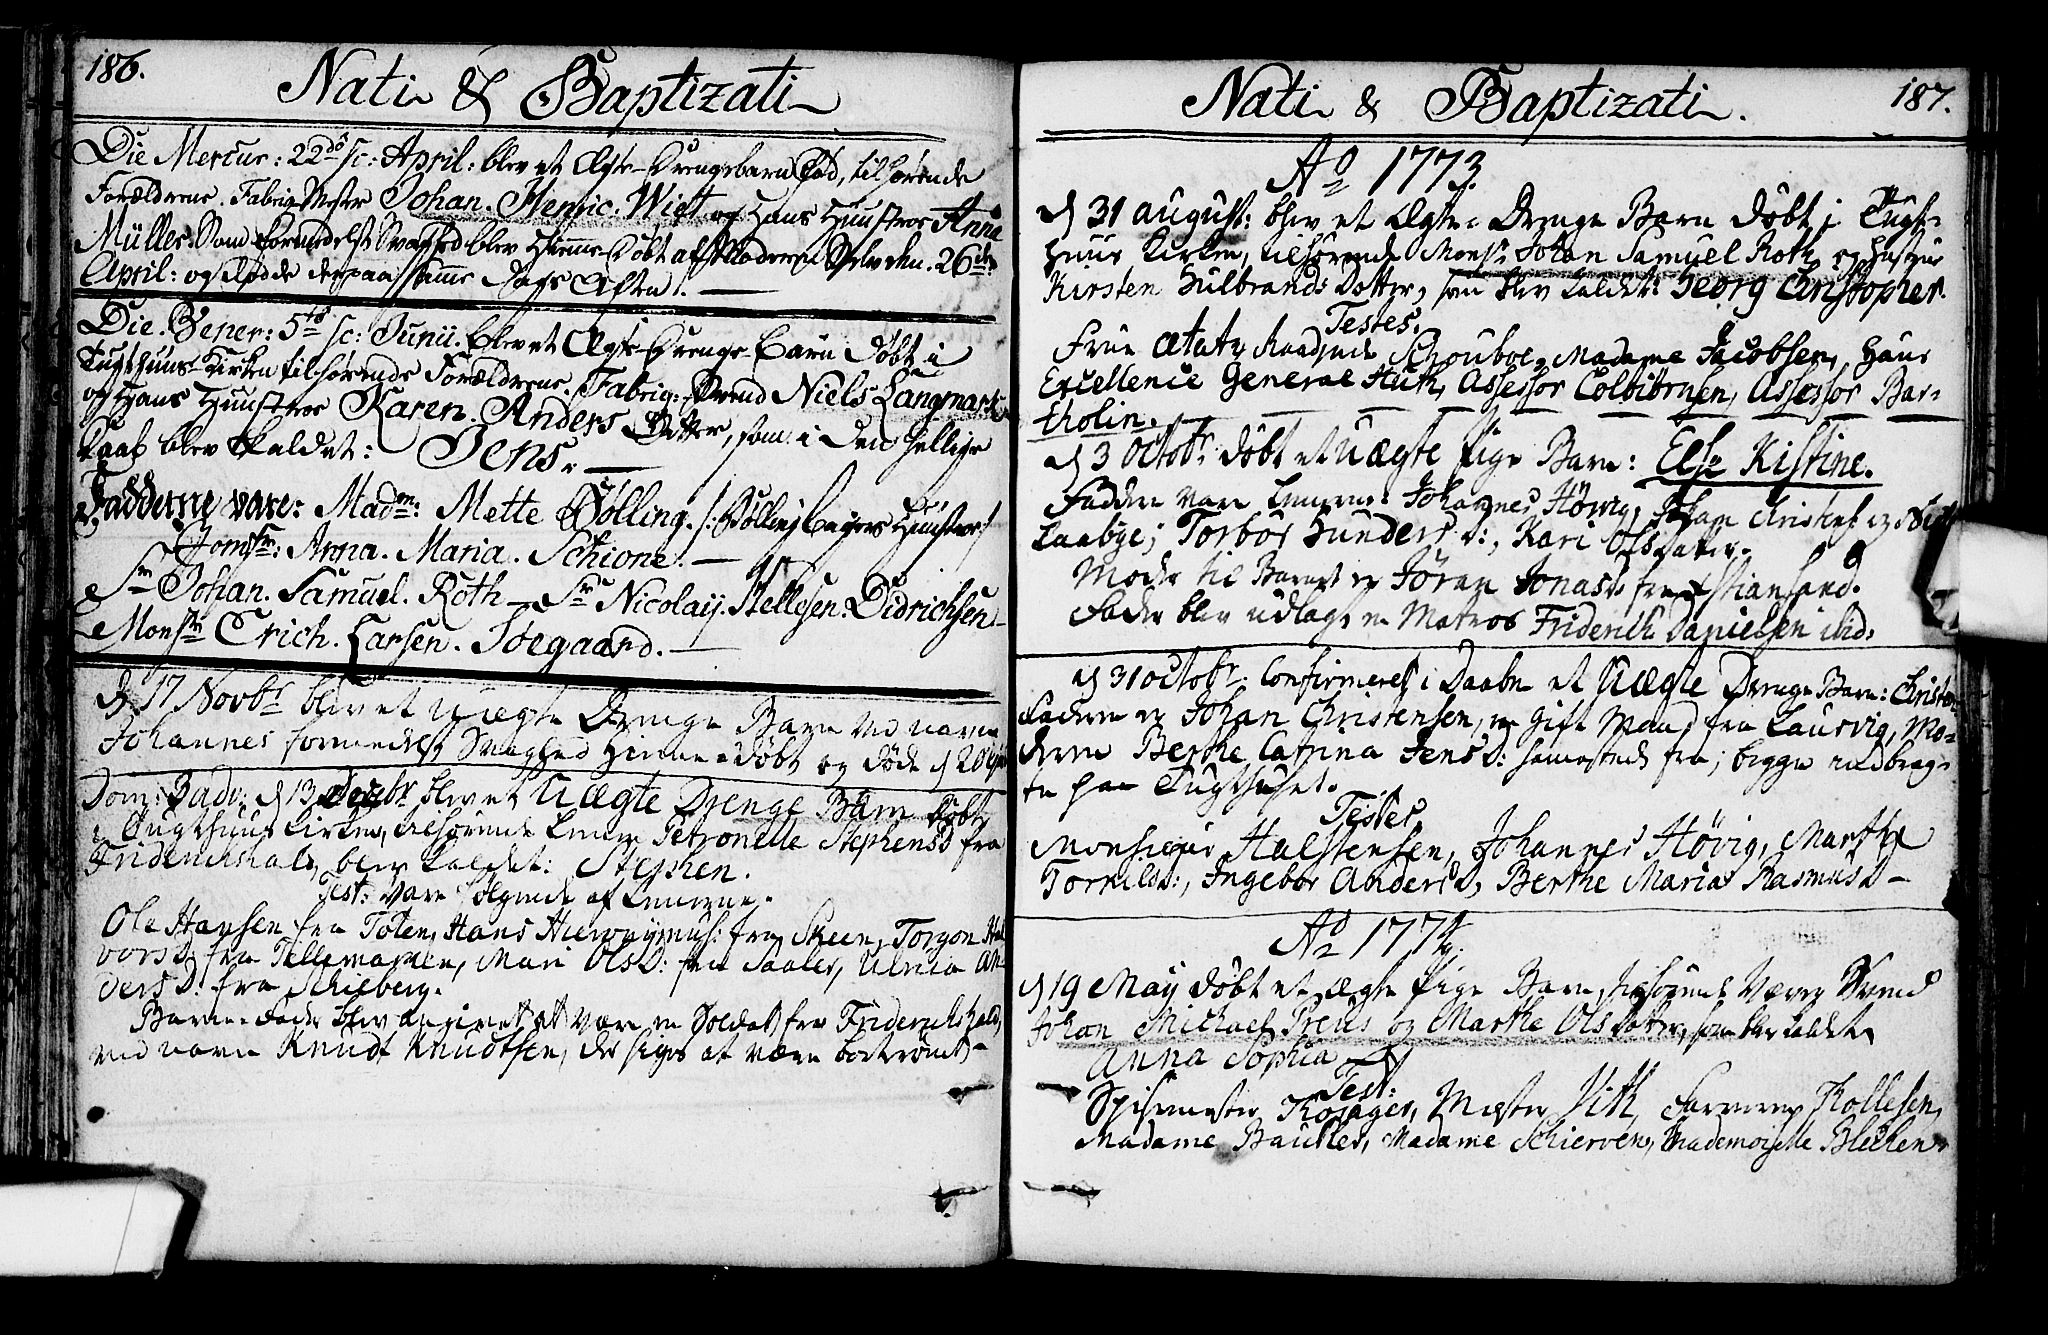 186.
Nati & Baptizati
Die Mercur: 22do sc: April: blev et Ægte-Drengebarn Fød, tilhørende
Forældrene. Fabriq-Mester Johan. Henric. Wiet og Hans Huustroe Anna
Müller. Som formedelst Svaghed blev Hiemme-Døbt af Moderen Selv den. 26de
April: og døde derpaa samme Dags Aften!
Die. Vener: 5te sc: Junii. blev et Ægte-Drenge-Barn Døbt i
Tugthuus-Kirken tilhørende Forældrene. Fabriq-Svend Niels Langmark
og Hans Huustroe Karen. Anders Dotter, som i den hellige
Daab blev kaldet: Jens.
Fadderne vare: Madme: Mette Bølling. /: Bølling Bagers Huustroe :/
Jomfr: Anna. Maria. Schione!
Sr Johan. Samuel. Roth - Sr Nicolaij. Hellesen. Didrichsen
Monsr Erich. Larsen. Søegaard.
d 17 Novbr blev et uægte Drenge Barn ved navn
Johannes formedelst Svaghed Hiemmedøbt og døde d 20
Dom: 3 adv: d 13 Decbr blev et Uægte Drenge Barn døbt
i Tugthuus Kirken, tilhørende Lem Petronelle StephensD fra
Friderichshald, blev kaldet: Stephen.
Test: vare følgende af Lemmerne.
Ole Hansen fra Toten, Hans Hieronymus: fra Skeen, Torgon Hal
vorsD: fra Tellemarken, Mari OlsD: fra Saaler, Ulrica An
dersD: fra Schieberg.
Barne-Fader blev angivet at være en Soldat fra Friderichshald,
ved navn Knudt Knudtsen, der siges at være bortrømt
Nati & Baptizati.
187.
Ao 1773.
d 31 august: blev et ægte Drenge Barn døbt i Tugt-
huus Kirken, tilhørende Monsr Johan Samuel Roth og Hustrue
Kirsten Hulbrands Dotter, som blev kaldet: Georg Christopher.
Testes.
Frue Etats Raadinde Schouboe, Madame Jacobsen, Hans
Excellence General Huth, Assessor Colbiørnsen, Assessor Bar-
tholin.
d 3 Octobr døbt et Uægte Pige Barn: Else Kistine.
Faddere vare Lemmerne Johannes Høvig, Johan Christ
Laabye, Torbor GundersD:, Kari Olsdatter.
Moder til Barnet er Jøran JonasD: fra Xstiansand.
Fader blev udlagt en Matros Friderich Danielsen ibid:
d 31 Octobr: Confirmeret i Daaben et Uægte Drenge Barn: Christen
Faderen er Johan Christensen, en gift Mand fra Laurvig, Mo-
deren Berthe Catrina JensD: samesteds fra; begge indbrag-
te her Tugthuset.
Testes
Monsieur Halstensen, Johannes Høvig, Marthe
TorkilsD:, Ingebor AndersD, Berthe Maria RasmusD
Ao 1774.
d 19 May døbt et ægte Pige Barn, tilhørende Væver Svend
Johan Michael Preus og Marthe Olsdatter, som blev kaldet
Anna Sophia
Test:
Spisemester Kosager, Mester Vith, Farveren Kollesen,
Madame Bautler, Madame Schierven, Mademoiselle Blechen